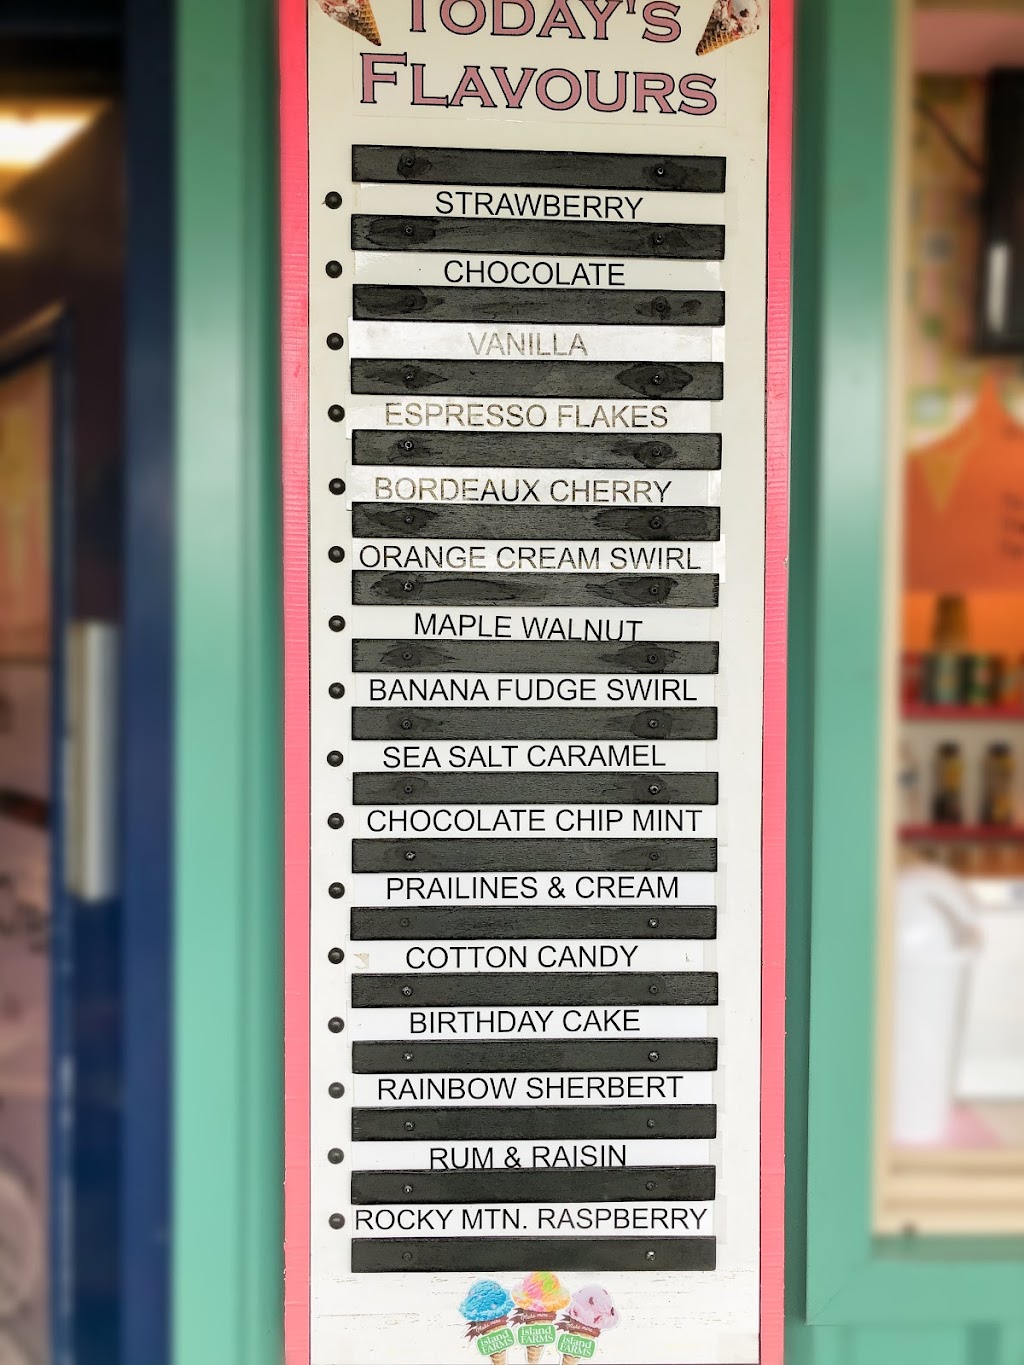 TODAY'S
FLAVOURS
STRAWBERRY
CHOCOLATE
VANILLA
ESPRESSO FLAKES
BORDEAUX CHERRY
ORANGE CREAM SWIRL
MAPLE WALNUT
BANANA FUDGE SWIRL
SEA SALT CARAMEL
CHOCOLATE CHIP MINT
PRAILINES & CREAM
COTTON CANDY
BIRTHDAY CAKE
RAINBOW SHERBERT
RUM & RAISIN
ROCKY MTN. RASPBERRY
island FARMS
island FARMS
island FARMS